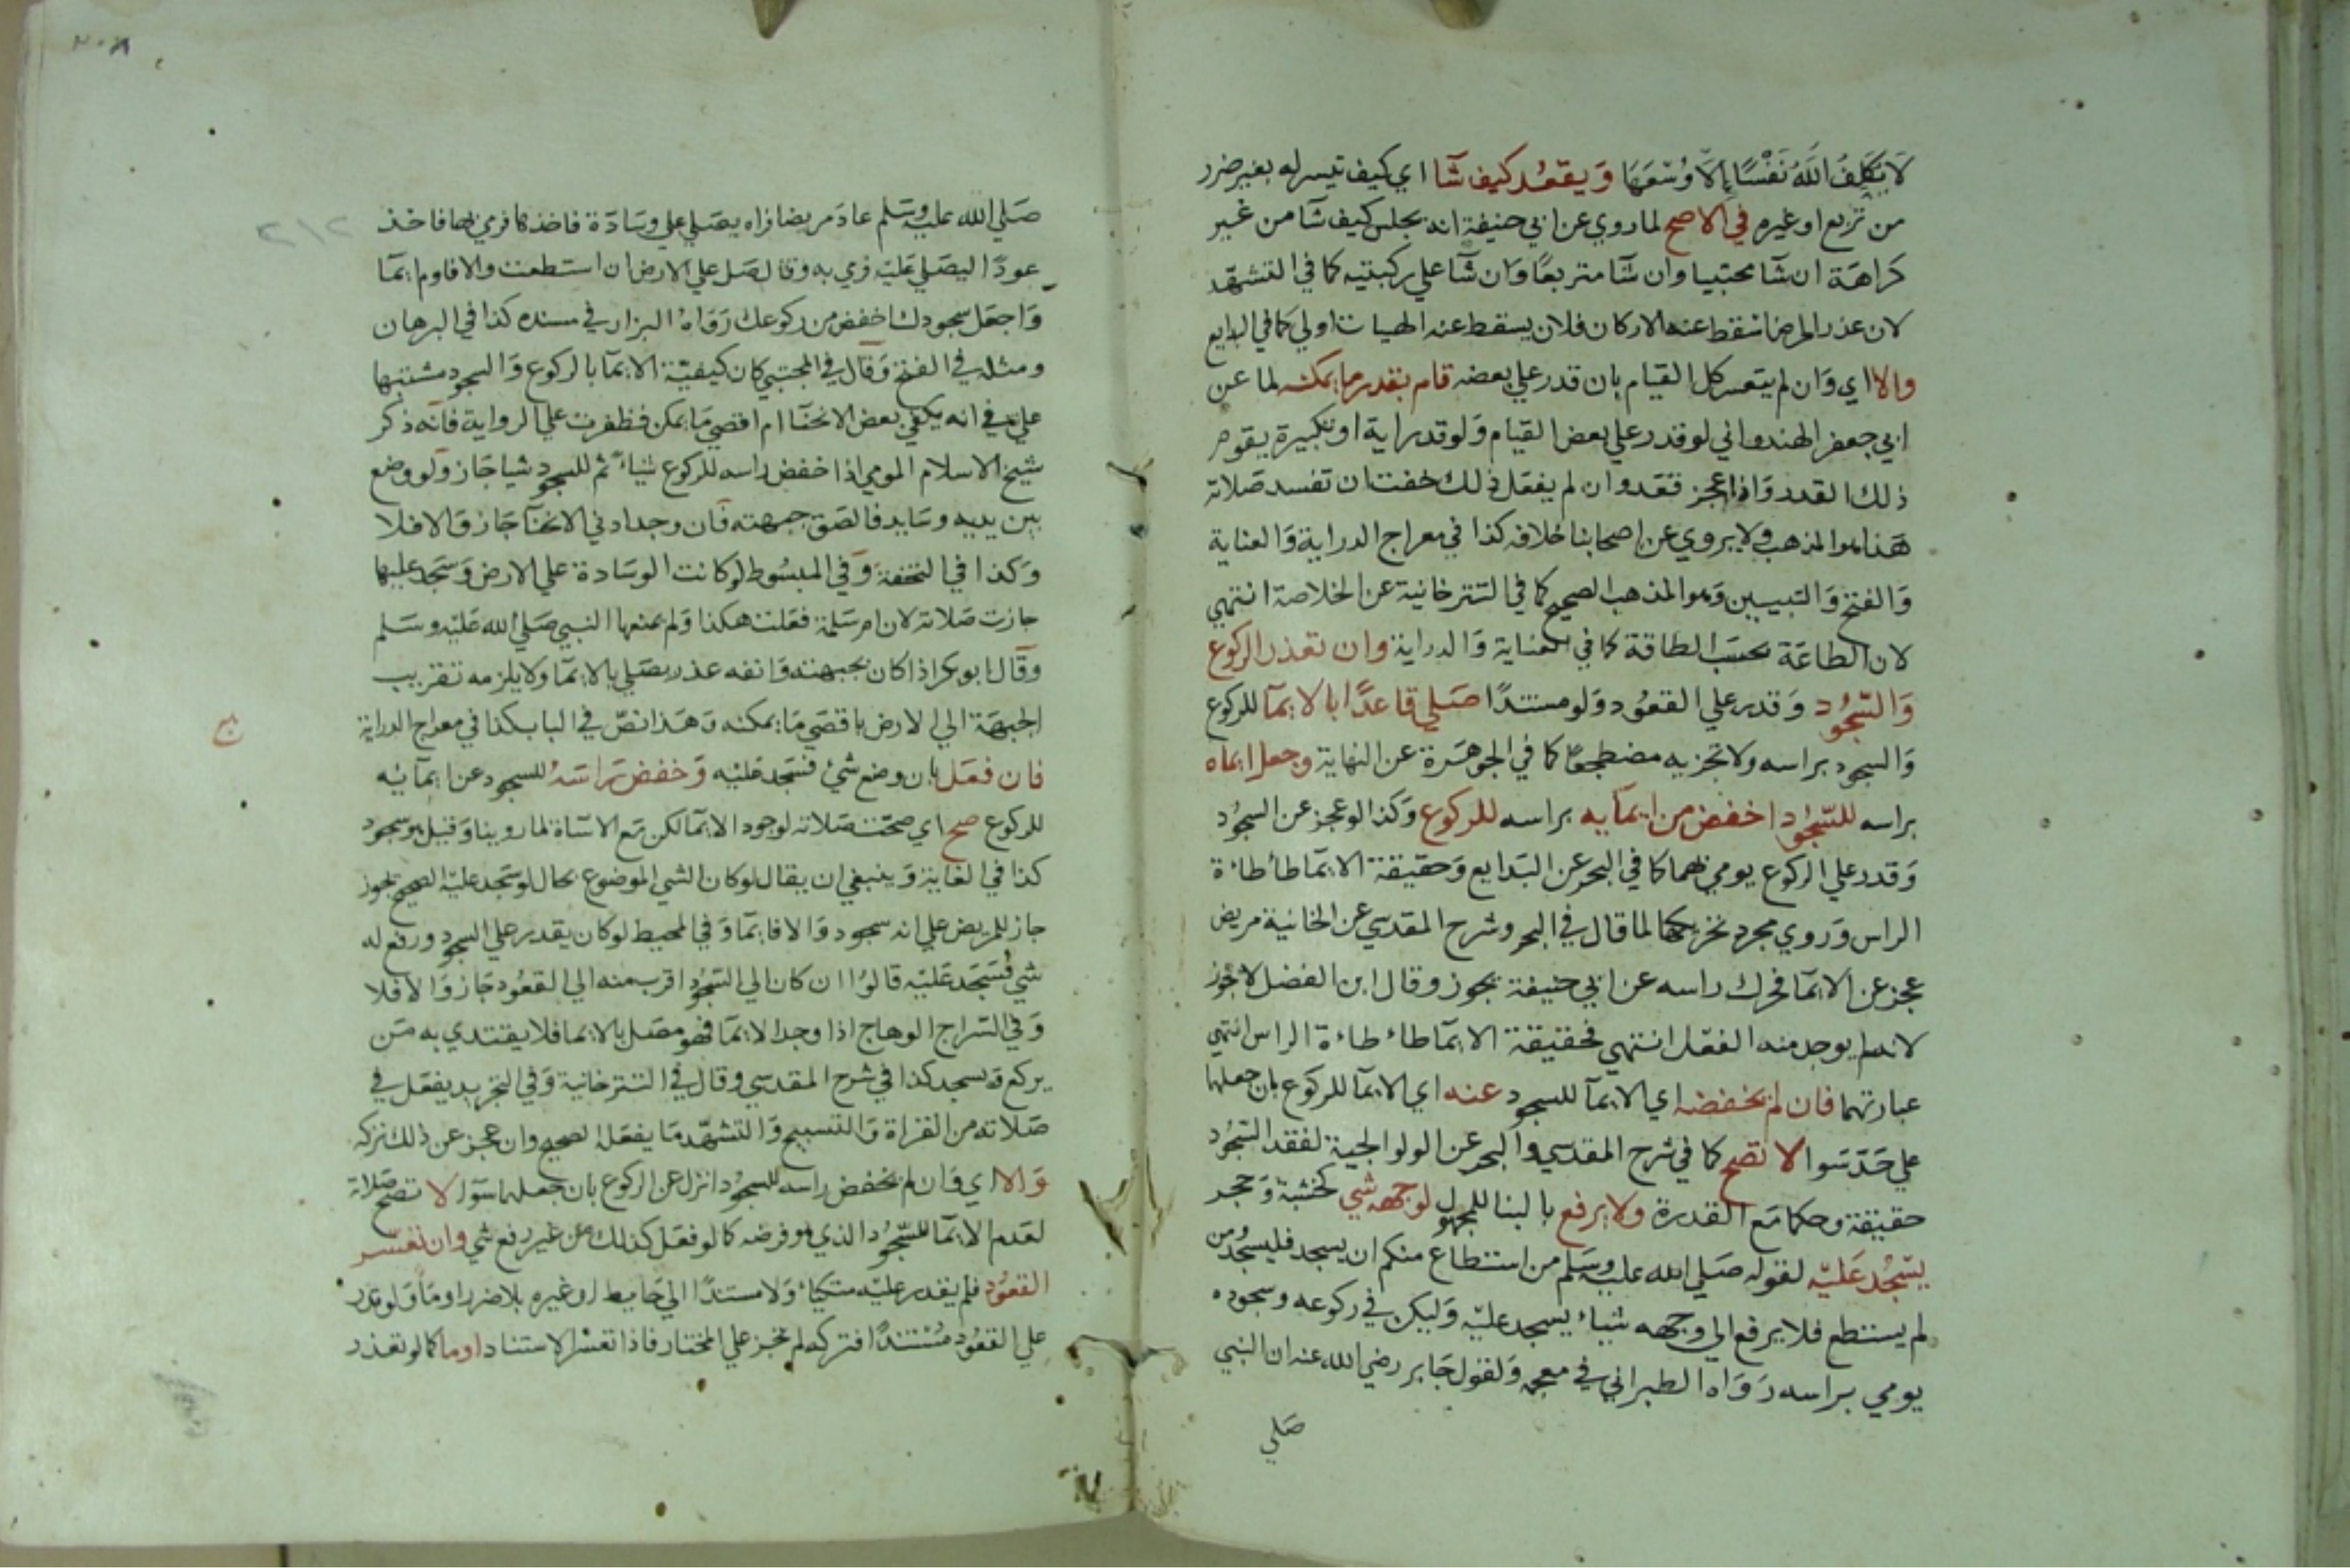 لَا يُكَلِّفُ اللَّهُ نَفْسًا إِلَّا وُسْعَهَا وَيقعُد كيف شآ اي كيف تيسر له بغير ضرر
من تربع او غيره في الاصح لما روي عن ابي حنيفة انه يجلس كيف شآ من غير
كراهة ان شآ محتبيا وان شآ متربعًا وان شآ علي ركبتيه كما في التشهد
لان عذر المرض اسقط عنه الاركان فلان يسقط عنه الهيات اولي كما في البدايع
والا اي وَان لم يتعسر كل القيام بان قدر علي بعضه قام بقدر ما يمكنه لما عن
ابي جعفر الهندواني لو قدر علي بعض القيام وَلو قدر اية او تكبيرة يقوم
ذلك القدر وَاذا عجز قعد وان لم يفعل ذلك خفت ان تفسد صلاته
هَذا هو المذهب ولا يروي عن اصحابنا خلافه كذا في معراج الدراية وَالعناية
وَالفتح وَالتبيين وَهو المذهب الصحيح كما في التترخانية عن الخلاصة انتهي
لان الطاعَة بحسَب الطاقة كما في العناية وَالدراية وان تعذر الركوع
وَالسّجُود وَقدر علي القعُود وَلو مستندًا صَلي قاعدًا بالايمآ للركوع
وَالسجود براسه ولا تجزيه مضطجعًا كما في الجوهَرة عن النهاية وجعل ايماه
براسه للسّجُود اخفض من ايمآيه براسه للركوع وَكذا لو عجز عن السجُود
وَقدر علي الركوع يومي بهما كما في البحر عن البَدايع وَحقيقة الايمَا طأطاءة
الراس وَروي مجرد تحريكها لما قال في البحر وشرح المقدسي عن الخانية مريض
عجز عن الايمَا فحرك راسه عن ابي حنيفة يجوز وقال ابن الفضل لا يجُوز
لانه لم يوجد منه الفعل انتهي فحقيقة الايمَا طاءطاءة الراس انتهي
عبارتهما فان لم يخفضه اي الايمآ للسجود عنه اي الايمآ للركوع بان جعلهما
علي حَدّ سَوا لا تصح كما في شرح المقدسي والبحر عن الولوالجية لفقد السّجُود
حقيقة وحكما مَع القدرة ولا يرفع بالبنا للمجهول لوجهه شي كخشبة وَحجر
يسّجُد عَليّه لقوله صَلي الله عليّه وسَلم من استطاع منكم ان يسجد فليسجُد ومن
لم يستطع فلا يرفع الي وجهه شياء يسجد عليّه وَليكن في ركوعه وسجوده
يومي براسه رَوَاه الطبراني في معجمه وَلقول جَابر رضي الله عنه ان النبي
صَلي
٢٠٨
٢١٢
صَلي الله عليّه وسَلم عادَ مريضا فراه يصَلي علي وسَادَة فاخذها فرمي بها فاخذ
عودًا ليصَلي عَليّه فرمي به وقال صَل علي الارض ان استطعت والا فاوم ايمَا
وَاجعَل سجودك اخفض من ركوعك رَوَاهُ البزار في مسنده كذا في البرهان
ومثله في الفتح وَقال في المجتبي كان كيفيّة الايمَا بالركوع وَالسجود مشتبها
علي في انه يكفي بعض الانحنَا ام اقصي مَا يمكن فظفرت علي الرواية فانه ذكر
شيخ الاسلام المومي اذا خفض راسه للركوع شياءً ثم للسجود شيا جَاز وَلو وضع
بين يديه وسَايد فالصَق جبهته فان وجد ادني الانحنَا جَاز وَالا فلا
وَكذا في التحفة وَفي المبسُوط لو كانت الوسَادة علي الارض وَسَجد عليها
جازت صَلاته لان ام سَلمة فعَلت هكذا وَلم يمنعها النبي صَلي الله عَليّه وسَلم
وقال ابو بكر اذا كان بجبهته وَانفه عذر يصَلي بالايمَا ولا يلزمه تقريب
الجبهَة الي الارض باقصَي مَا يمكنه وَهَذا نصّ في الباب كذا في معراج الدراية
فان فعَل بان وضع شيء فسَجد عَليّه وَخفض رَاسَهُ للسجود عن ايمآئيه
للركوع صح اي صحّت صَلاته لوجود الايمَا لكن مَع الاسَاة لما روينا وَقيل هو سجود
كذا في الغاية وَينبغي ان يقال لو كان الشي الموضوع بحال لو سَجد عليّه الصحيح يجوز
جاز للمريض علي انه سجود وَالا فايمَا وَفي المحيط لو كان يقدر علي السجود ورفع له
شي فسَجَد عَليّه قالوُا ان كان الي السّجُود اقرب منه الي القعُود جَاز وَالا فلا
وَفي السّراج الوهاج اذا وجد الايمَا فهو مصَل بالايما فلا يقتدي به مَن
يركع وَيسجد كذا في شرح المقدسي وقال في التترخانية وَفي التجريد يفعَل في
صَلاته من القراة وَالتسبيح وَالتشهّد مَا يفعَل الصحيح وان عجز عن ذلك تركه
وَالا اي وَان لم يخفض راسه للسجُود انزل عن الركوع بان جعلهما سَوَا لا تصح صَلاته
لعَدم الايمَا للسّجُود الذي هو فرضه كما لو فعَل كذلك من غير رفع شي وان تعَسّر
القعُود فلم يقدر عليّه متكياءً وَلا مستندًا الي حَايط او غيره بلا ضرر اومَأ وَلو قدر
علي القعُود مُسْتندًا فتركه لم تجز علي المختار فاذا تعَسّر الاستناد اوما كما لو تعذر